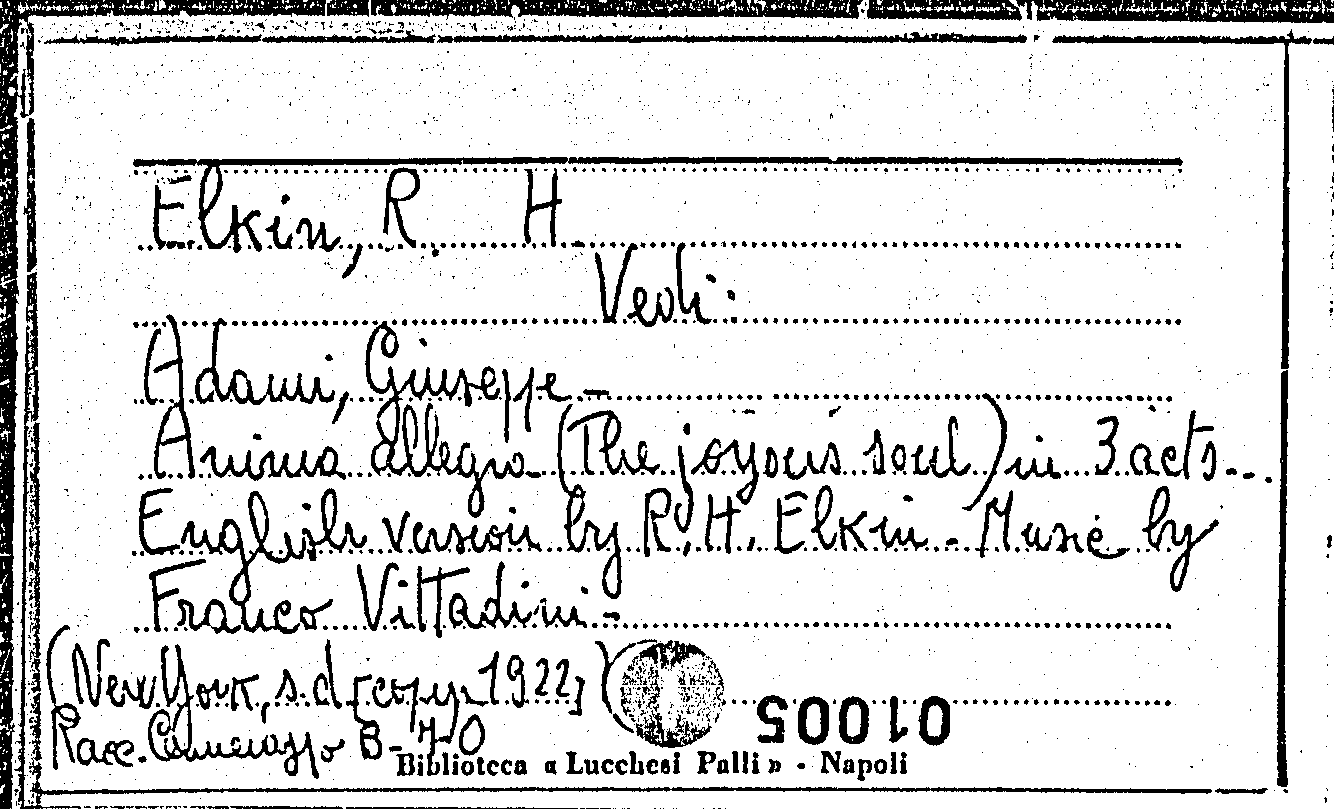 Elkin, R. H.
Vedi:
Adami, Giuseppe -
Anima allegra (The joyous soul) in 3 acts...
English version by R. H. Elkin - Music by
Franco Vittadini -
(New York, s.d. [copyr. 1922])
Racc. B-
01005
Biblioteca « Lucchesi Palli » - Napoli